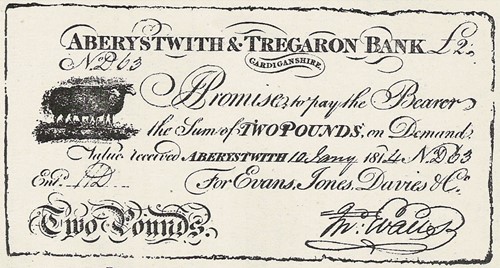 ABERYSTWITH & TREGARON BANK £2.
CARDIGANSHIRE.
No. D 63
I Promise to pay the Bearer
the Sum of TWO POUNDS, on Demand
Value received ABERYSTWITH 10 Jany 1814 No D 63
Entd. For Evans, Jones, Davies & Co.
Two Pounds.